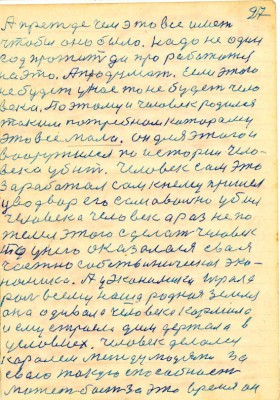 27
А прежде чем это все иметь
чтобы оно было. надо не один
год прожити да проработать
на это. А продумат. Если этого
не будет у нас то не будет чело
века. Поэтому и человек родился
таким потребном каторому
это все мала. он для этого и
вооружился по истории чело-
века убит. Человек сам это
заработал сам к нему пришел
у во двор его самавольно убил
человека человек а раз не по
этого сделат человек
у него оказалася свая
частно собственическая эко-
номика. А у экономики играла
рол всему наша родная земля
она одивала человека кормила
и ему строила дом держала в
условиях. Человек делался
каралем между людями за
сваю такую способность
может быт за это время он